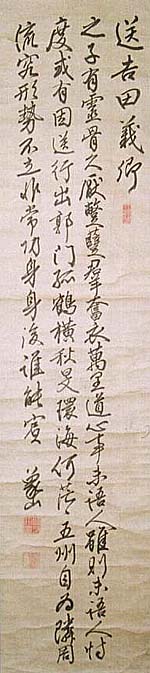 送吉田義卿
之子有靈骨久厭蹩躠羣奮衣萬里道心事未語人雖則未語人忖
度或有因送行出郭門孤鶴横秋旻環海何茫五州自為隣周
流究形勢不立非常功身身後誰能賓 象山